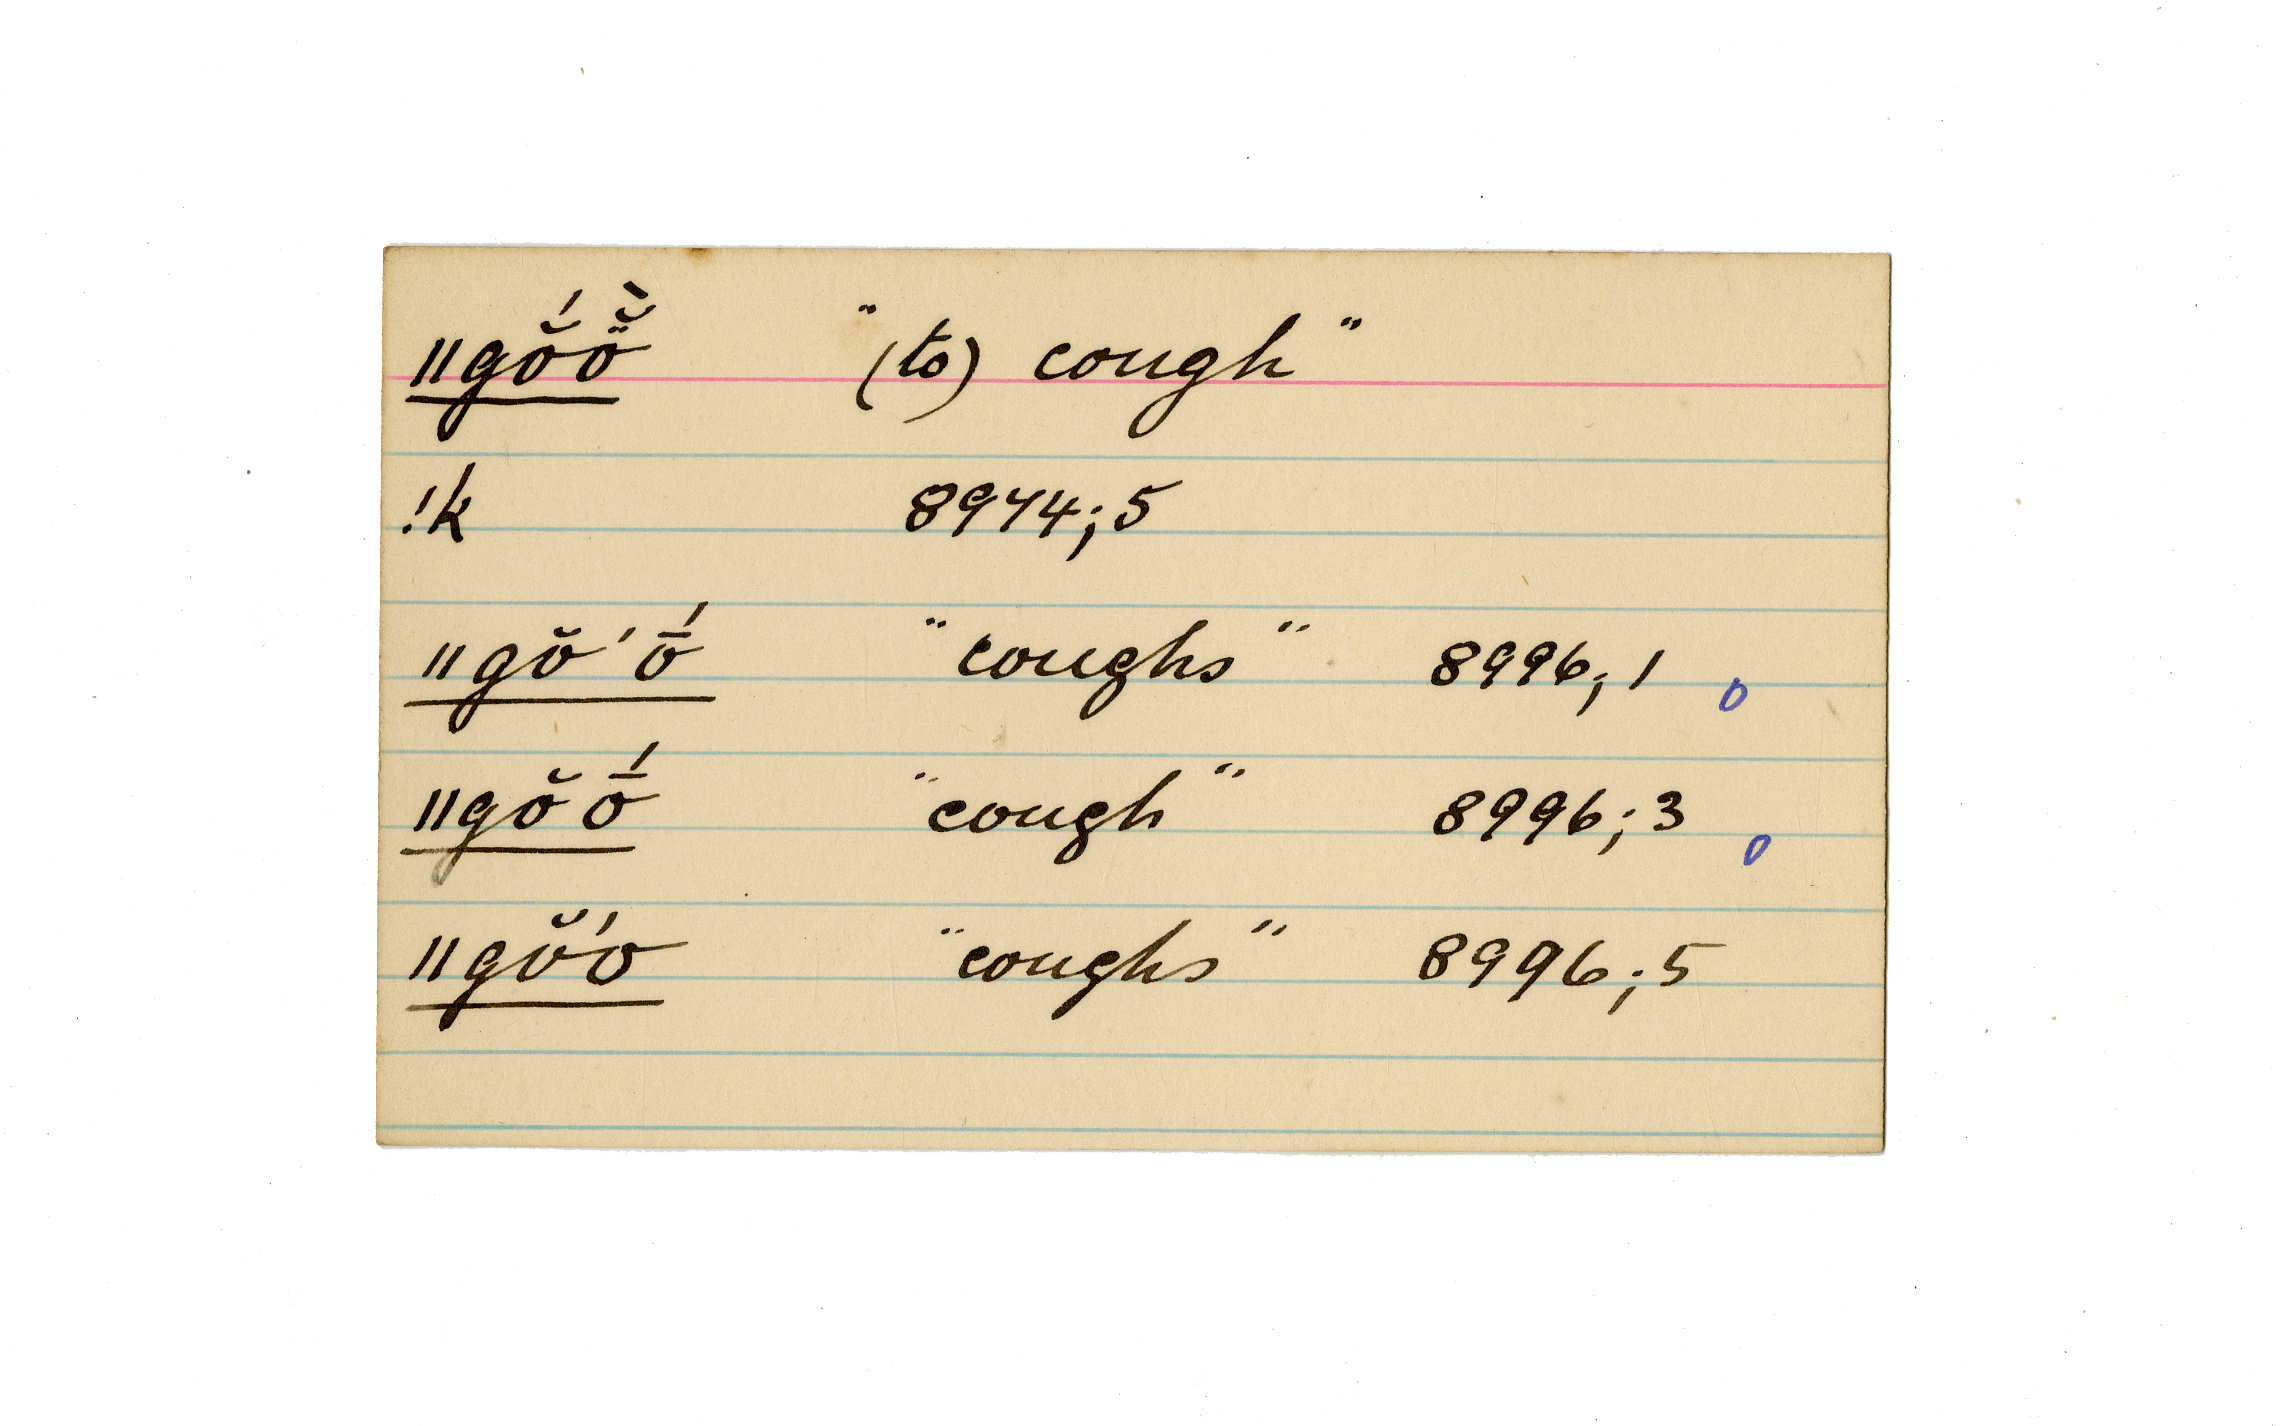 ǁgŏ́ö̆̀ "(to) cough"
!k 8974;5
ǁgŏ'ṓ "coughs" 8996;1 0
ǁgŏṓ "cough" 8996;3 0
ǁgŏ'o "coughs" 8996;5